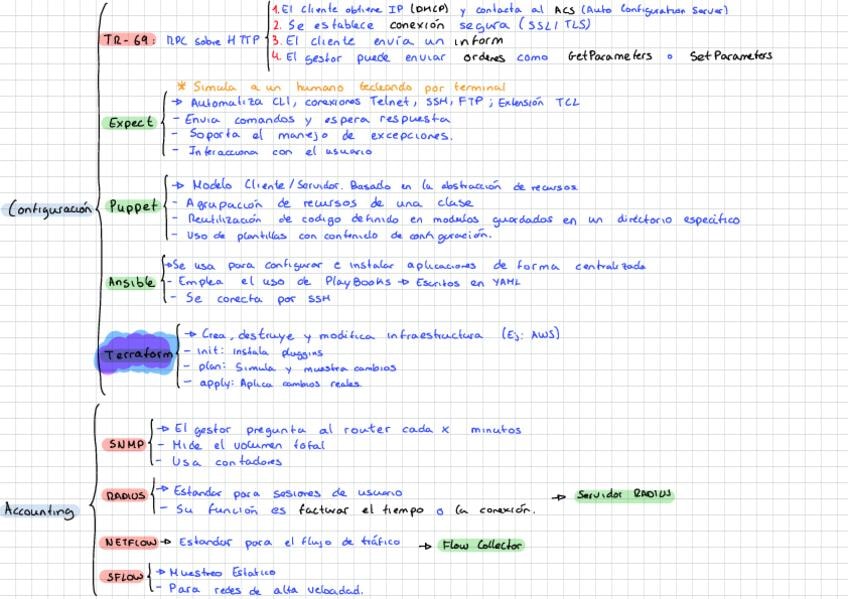 1. El cliente obtiene IP (DHCP) y contacta al ACS (Auto Configuration Server)
2. Se establece conexión segura (SSL/TLS)
TR-69: RPC sobre HTTP 3. El cliente envía un inform
4. El gestor puede enviar ordenes como GetParameters o SetParameters
* Simula a un humano tecleando por terminal
→ Automatiza CLI, conexiones Telnet, SSH, FTP; Extensión TCL
Expect - Envia comandos y espera respuesta
- Soporta el manejo de excepciones.
- Interacciona con el usuario
→ Modelo Cliente/Servidor. Basado en la abstracción de recursos
Configuración Puppet - Agrupación de recursos de una clase
- Reutilización de codigo definido en modulos guardados en un directorio especifico
- Uso de plantillas con contenido de configuración.
→ Se usa para configurar e instalar aplicaciones de forma centralizada
Ansible - Emplea el uso de PlayBooks → Escritos en YAML
- Se conecta por SSH
→ Crea, destruye y modifica infraestructura (Ej: AWS)
Terraform - init: Instala pluggins
- plan: Simula y muestra cambios
- apply: Aplica cambios reales
→ El gestor pregunta al router cada x minutos
SNMP - Mide el volumen total
- Usa contadores
RADIUS → Estandar para sesiones de usuario → Servidor RADIUS
Accounting - Su función es facturar el tiempo o la conexión.
NETFLOW → Estandar para el flujo de tráfico → Flow Collector
SFLOW → Muestreo Estatico
- Para redes de alta velocidad.